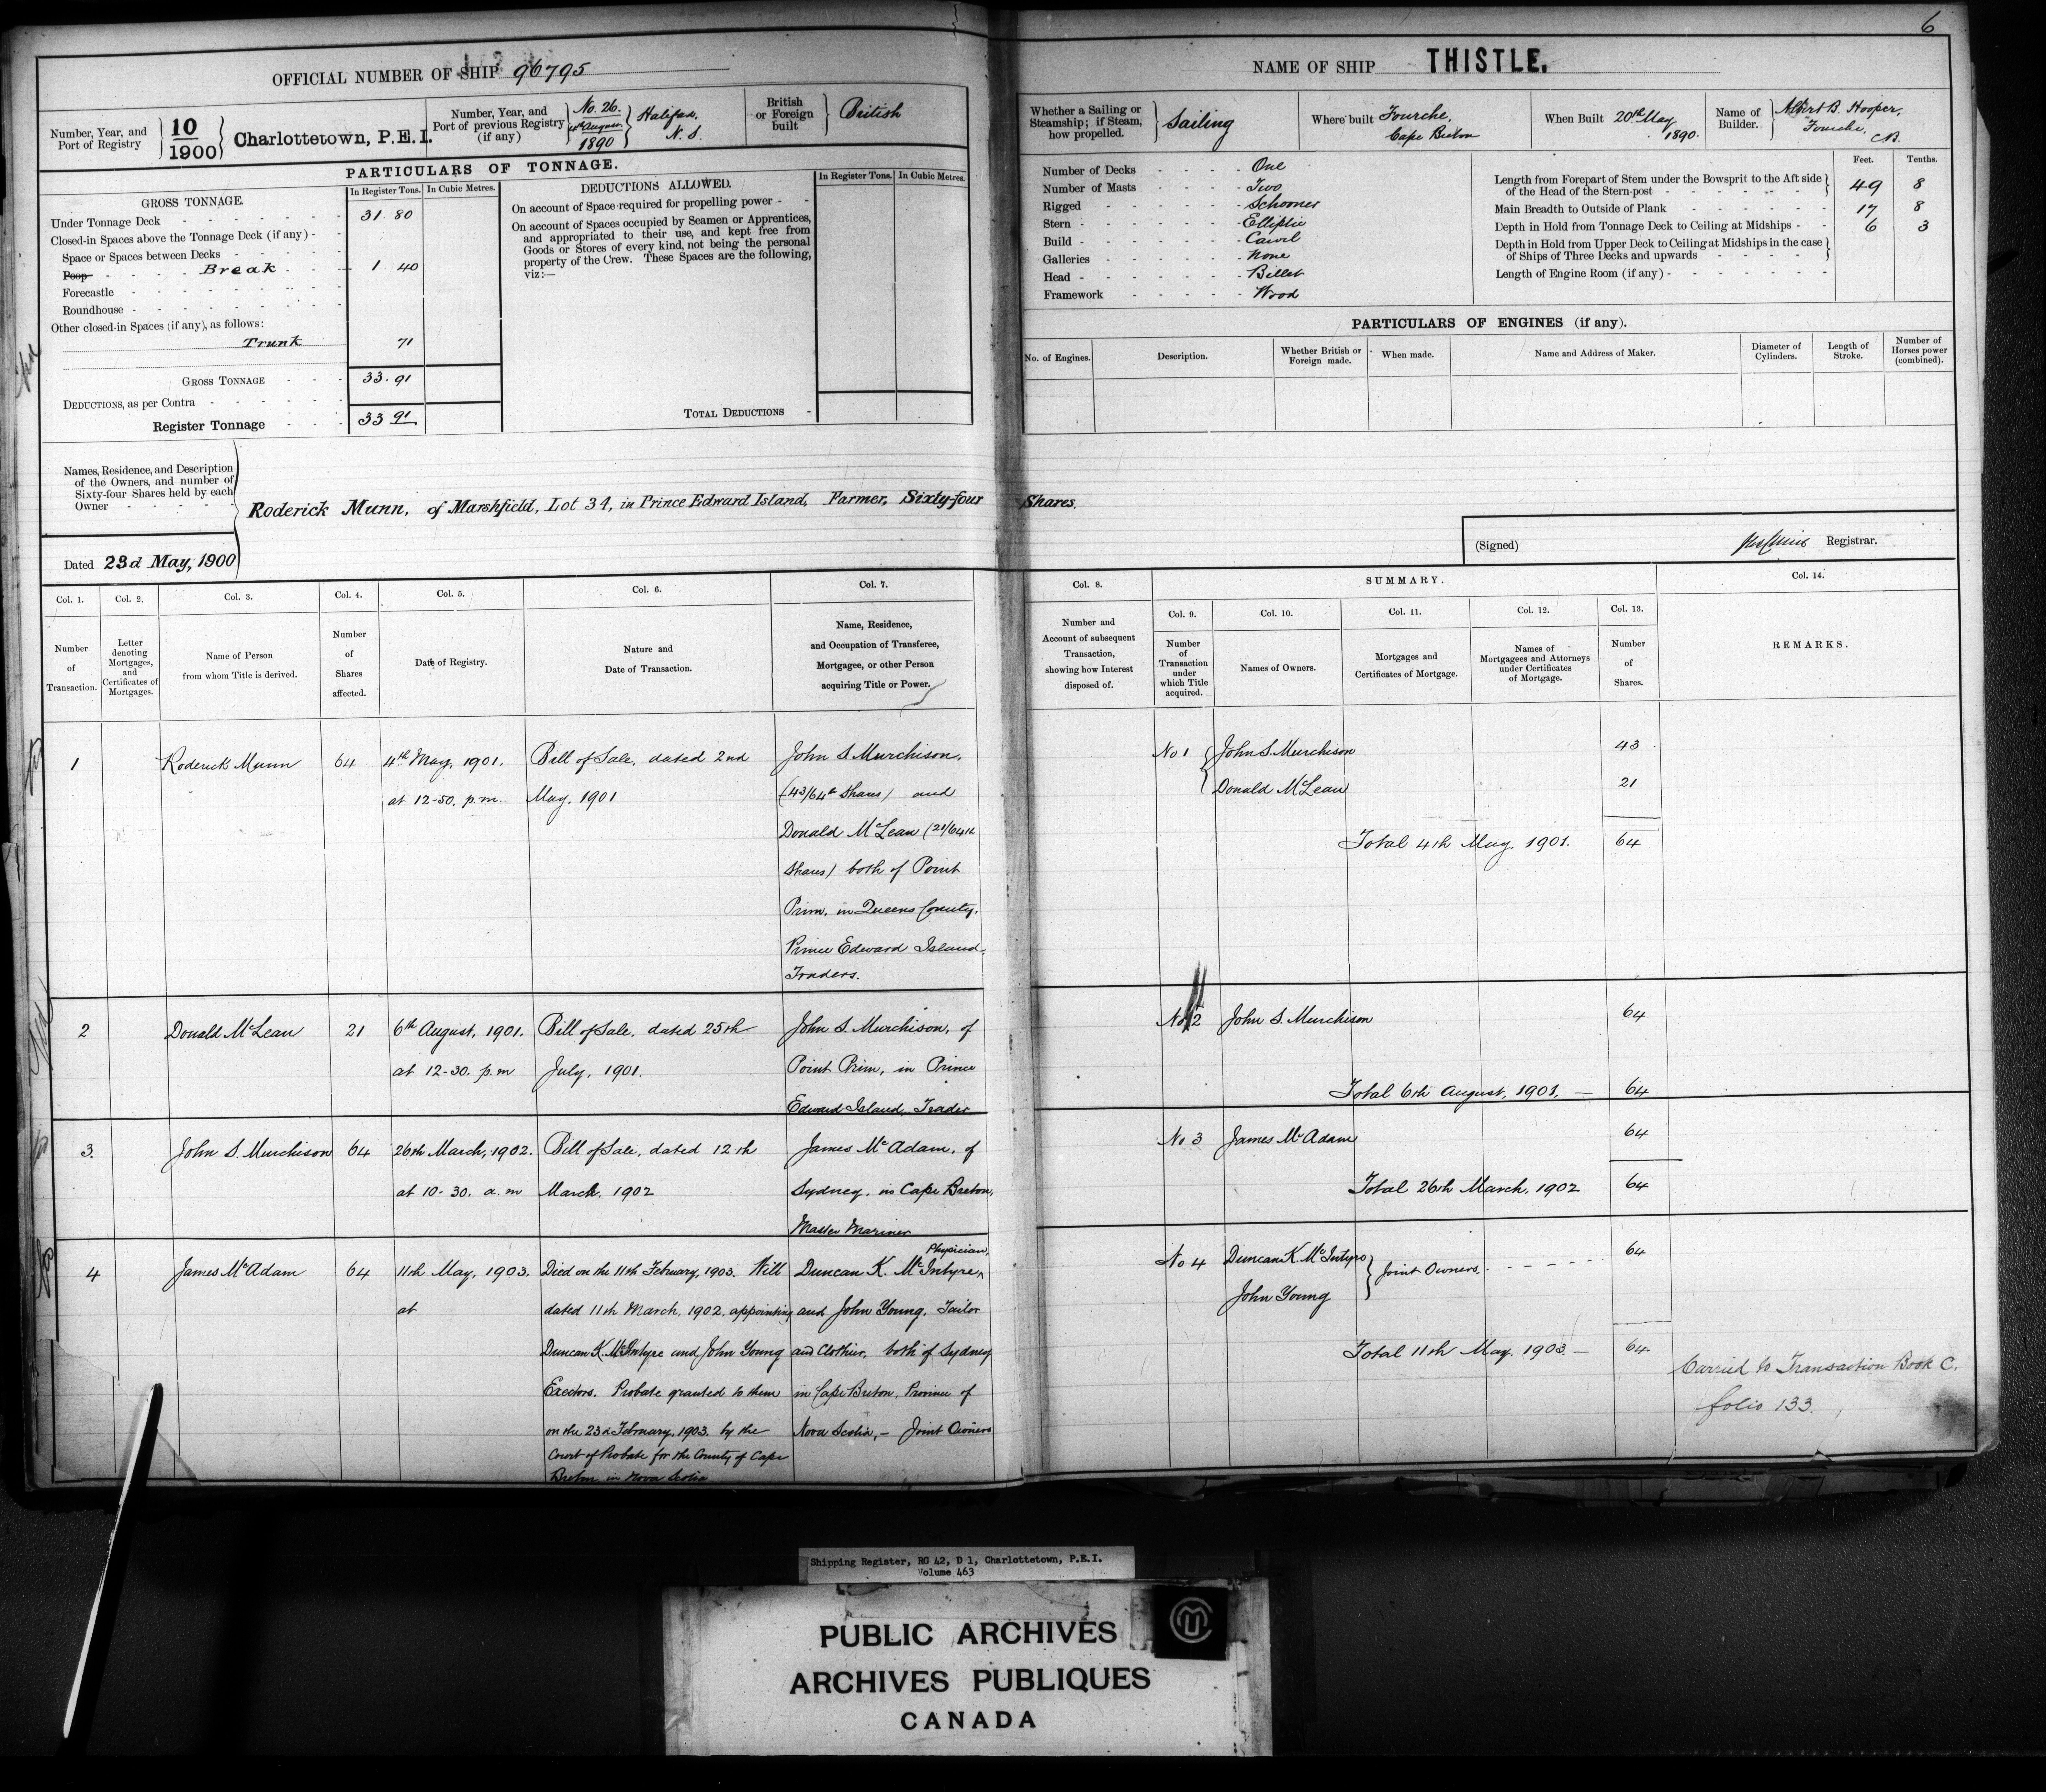 6
OFFICIAL NUMBER OF SHIP 96795
NAME OF SHIP THISTLE.
Number, Year, and Port of Registry 10/1900 Charlottetown, P.E.I.
Number, Year, and Port of previous Registry (if any) No. 26. 4th August. 1890 Halifax, N. S.
British or Foreign built British
Whether a Sailing or Steamship; if Steam, how propelled. Sailing
Where built Fourche, Cape Breton
When Built 20th May 1890.
Name of Builder. Albert B. Hooper, Fourche, C.B.
PARTICULARS OF TONNAGE.
GROSS TONNAGE.
In Register Tons. In Cubic Metres.
Under Tonnage Deck 31 80
Closed-in Spaces above the Tonnage Deck (if any)
Space or Spaces between Decks
Poop Break 1 40
Forecastle
Roundhouse
Other closed-in Spaces (if any), as follows:
Trunk 71
GROSS TONNAGE 33.91
DEDUCTIONS, as per Contra
Register Tonnage 33 91
DEDUCTIONS ALLOWED.
In Register Tons. In Cubic Metres.
On account of Space required for propelling power
On account of Spaces occupied by Seamen or Apprentices,
and appropriated to their use, and kept free from
Goods or Stores of every kind, not being the personal
property of the Crew. These Spaces are the following,
viz:—
TOTAL DEDUCTIONS
Number of Decks One
Number of Masts Two
Rigged Schooner
Stern Elliptic
Build Carvel
Galleries None
Head Billet
Framework Wood
Feet. Tenths.
Length from Forepart of Stem under the Bowsprit to the Aft side
of the Head of the Stern-post 49 8
Main Breadth to Outside of Plank 17 8
Depth in Hold from Tonnage Deck to Ceiling at Midships 6 3
Depth in Hold from Upper Deck to Ceiling at Midships in the case
of Ships of Three Decks and upwards
Length of Engine Room (if any)
PARTICULARS OF ENGINES (if any).
No. of Engines. Description. Whether British or Foreign made. When made. Name and Address of Maker. Diameter of Cylinders. Length of Stroke. Number of Horses power (combined).
Names, Residence, and Description
of the Owners, and number of
Sixty-four Shares held by each
Owner
Roderick Munn, of Marshfield, Lot 34, in Prince Edward Island, Farmer, Sixty-four Shares.
Dated 23d May, 1900
(Signed) Registrar.
Col. 1. Number of Transaction.
Col. 2. Letter denoting Mortgages, and Certificates of Mortgages.
Col. 3. Name of Person from whom Title is derived.
Col. 4. Number of Shares affected.
Col. 5. Date of Registry.
Col. 6. Nature and Date of Transaction.
Col. 7. Name, Residence, and Occupation of Transferee, Mortgagee, or other Person acquiring Title or Power.
Col. 8. Number and Account of subsequent Transaction, showing how Interest disposed of.
SUMMARY.
Col. 9. Number of Transaction under which Title acquired.
Col. 10. Names of Owners.
Col. 11. Mortgages and Certificates of Mortgage.
Col. 12. Names of Mortgagees and Attorneys under Certificates of Mortgage.
Col. 13. Number of Shares.
Col. 14. REMARKS.
1 Roderick Munn 64 4th May, 1901. Bill of Sale, dated 2nd John S. Murchison,
at 12-50. p.m. May, 1901 (43/64th Shares) and
Donald McLean (21/64th
Shares) both of Point
Prim, in Queens County,
Prince Edward Island.
Traders.
No 1 John S. Murchison 43
Donald McLean 21
Total 4th May, 1901. 64
2 Donald McLean 21 6th August, 1901. Bill of Sale, dated 25th John S. Murchison, of
at 12-30. p.m July, 1901. Point Prim, in Prince
Edward Island, Trader
No 2 John S. Murchison 64
Total 6th August, 1901. — 64
3. John S. Murchison 64 26th March, 1902. Bill of Sale, dated 12th James McAdam, of
at 10-30. a.m March, 1902 Sydney, in Cape Breton,
Master Mariner
No 3 James McAdam 64
Total 26th March, 1902 64
4 James McAdam 64 11th May, 1903. Died on the 11th February, 1903. Will Duncan K. McIntyre, Physician,
at dated 11th March, 1902, appointing and John Young, Tailor
Duncan K. McIntyre and John Young and Clothier, both of Sydney
Exectors. Probate granted to them in Cape Breton, Province of
on the 23d February, 1903. by the Nova Scotia, — Joint Owners
Court of Probate for the County of Cape
Breton in Nova Scotia
No 4 Duncan K. McIntyre 64
John Young Joint Owners.
Total 11th May, 1903 — 64
Carried to Transaction Book C.
folio 133.
Shipping Register, RG 42, D 1, Charlottetown, P.E.I.
Volume 463
PUBLIC ARCHIVES
ARCHIVES PUBLIQUES
CANADA